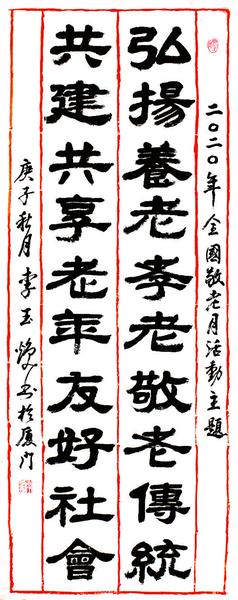 二〇二〇年全國敬老月活動主題
弘揚養老孝老敬老傳統
共建共享老年友好社會
庚子秋月李玉書於厦门